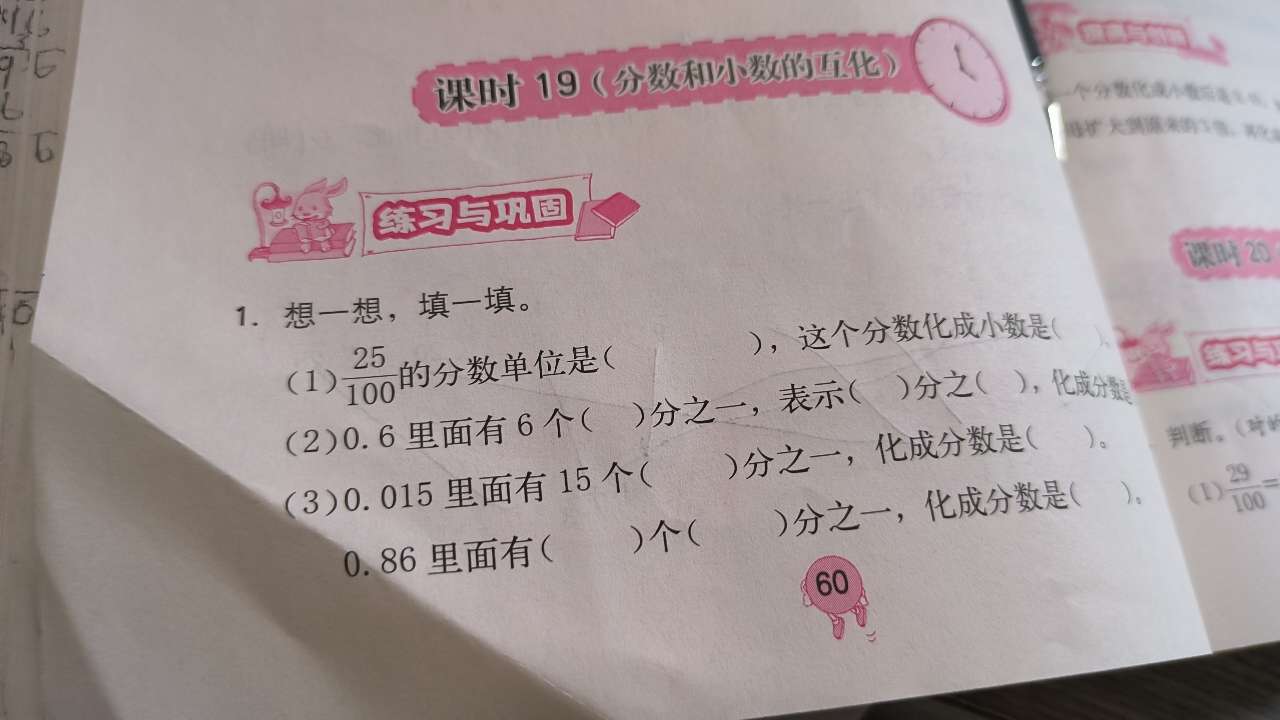 课时 19（分数和小数的互化）
练习与巩固
1. 想一想，填一填。
(1) 25/100 的分数单位是(　　　)，这个分数化成小数是(　　)。
(2) 0.6 里面有 6 个(　)分之一，表示(　)分之(　)，化成分数是
(3) 0.015 里面有 15 个(　　)分之一，化成分数是(　　)。
0.86 里面有(　　)个(　　)分之一，化成分数是(　　)。
60
一个分数化成小数后是
扩大到原来的
课时 20
练习与
判断。（对的
(1) 29/100 =
6
9 6
6
8 6